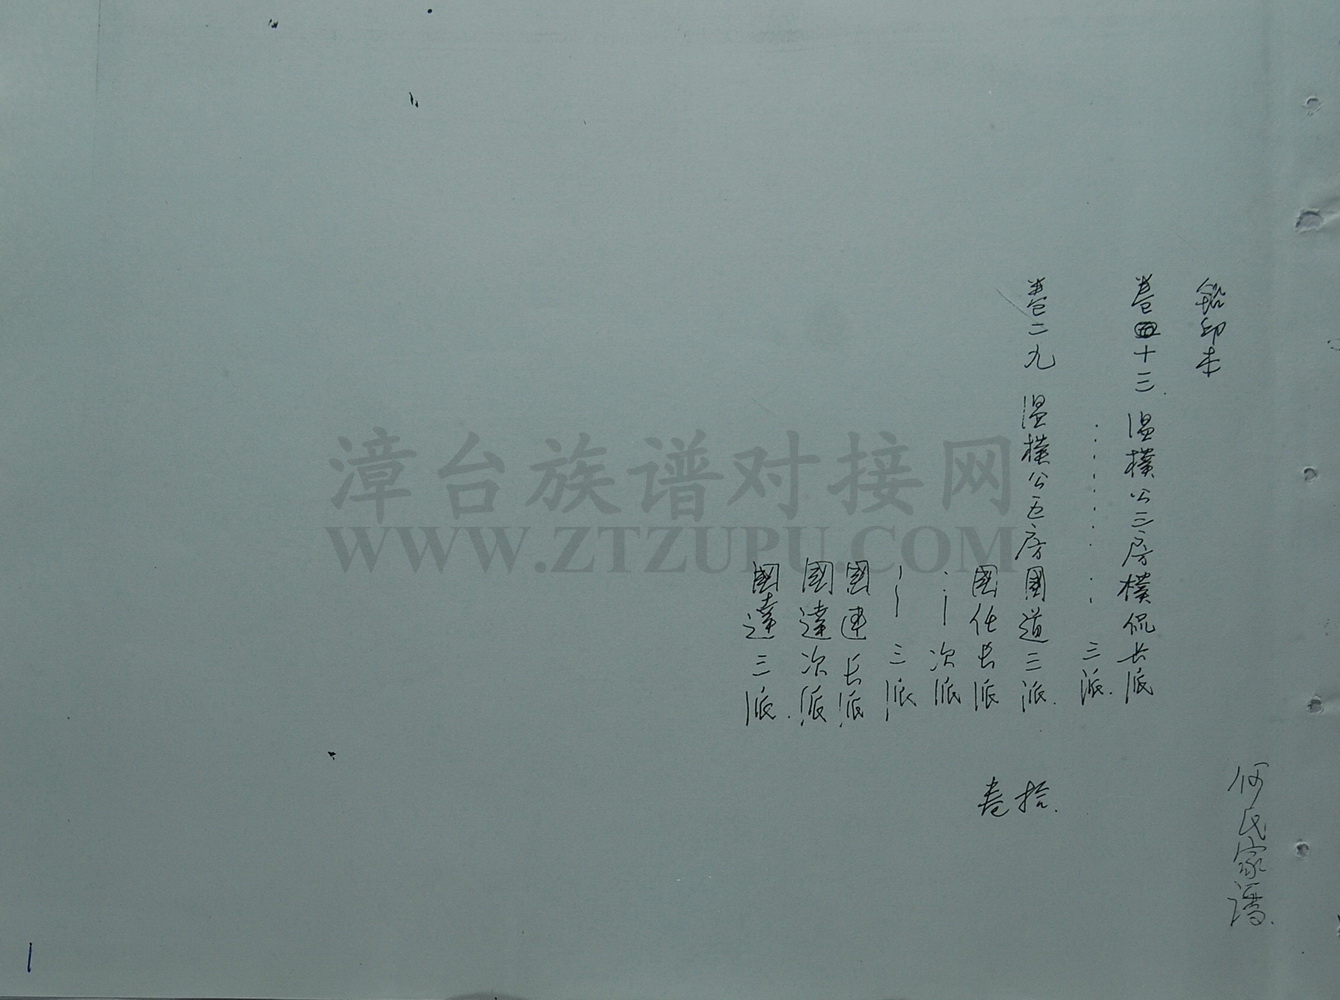 何氏家谱.
铅印本
卷四十三. 温樸公三房樸侃长派
. . . . . . . . . 三派.
卷二九 温樸公五房國道三派.
國任长派
: | 次派
三派
國連长派
國達次派
國達三派.
拾.
卷
漳台族谱对接网
WWW.ZTZUPU.COM
1